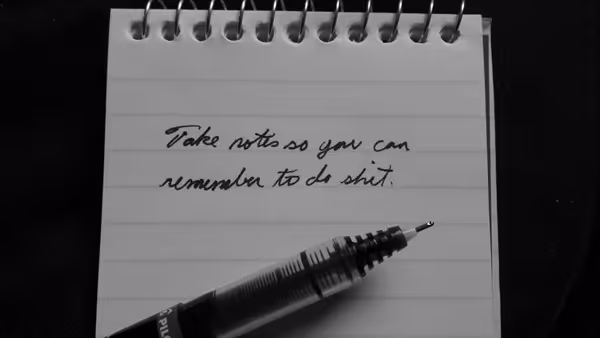 Take notes so you can
remember to do shit.
PILO